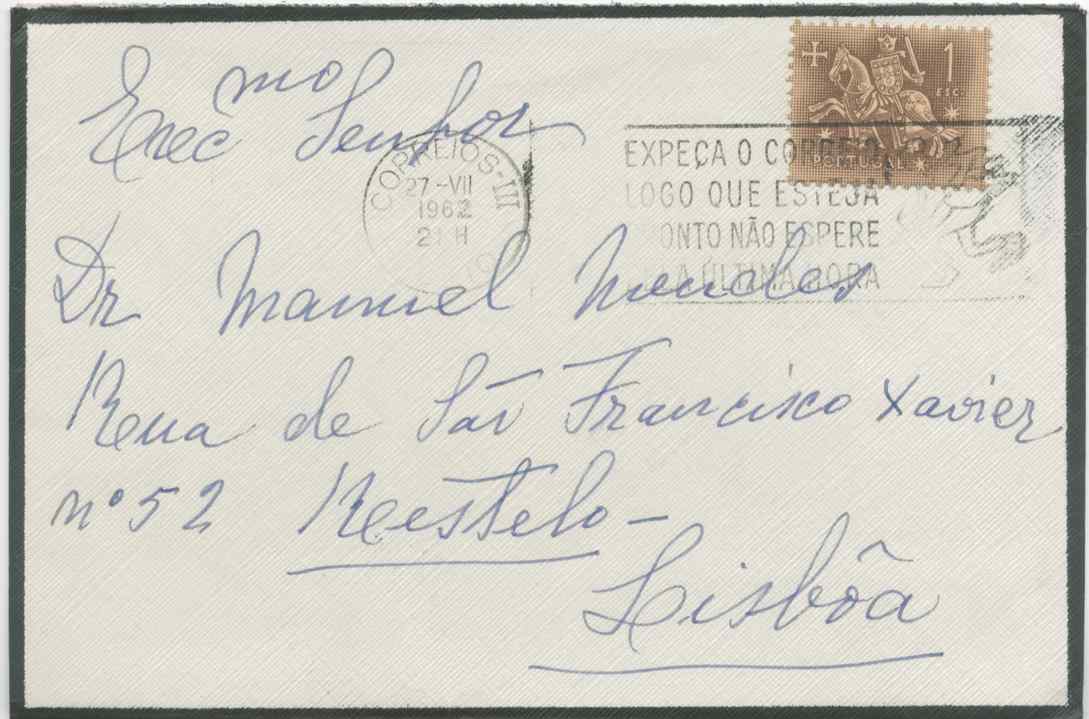 Excmo Senhor
Dr Manuel Mendes
Rua de São Francisco Xavier
nº 52 Restelo -
Lisbôa
1
ESC.
PORTUGAL
CORREIOS-III
27-VII
1962
21 H
EXPEÇA O CORREIO
LOGO QUE ESTEJA
PRONTO NÃO ESPERE
A ÚLTIMA HORA